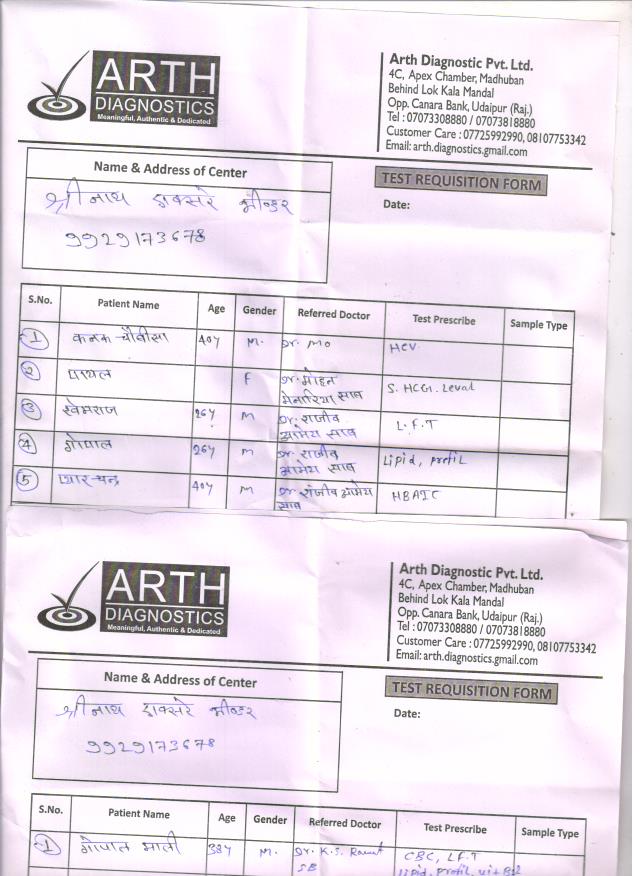 ARTH
DIAGNOSTICS
Meaningful, Authentic & Dedicated
Arth Diagnostic Pvt. Ltd.
4C, Apex Chamber, Madhuban
Behind Lok Kala Mandal
Opp. Canara Bank, Udaipur (Raj.)
Tel : 07073308880 / 07073818880
Customer Care : 07725992990, 08107753342
Email: arth.diagnostics.gmail.com
Name & Address of Center
TEST REQUISITION FORM
Date:
श्री नाथ
9929173678
S.No. Patient Name Age Gender Referred Doctor Test Prescribe Sample Type
1 कनक चौबीसा 40y M. Dr. MO HCV
2 पायल F Dr. मोहन S. HCG. Leval
मेनारिया साब
3 खेमराज 26y M Dr. राजीव L.F.T
आमेय साब
4 गोपाल 26y M Dr. राजीव Lipid, profil
आमेय साब
5 प्यार चन्द्र 40y M Dr. राजीव आमेय HBAIC
साब
ARTH
DIAGNOSTICS
Meaningful, Authentic & Dedicated
Arth Diagnostic Pvt. Ltd.
4C, Apex Chamber, Madhuban
Behind Lok Kala Mandal
Opp. Canara Bank, Udaipur (Raj.)
Tel : 07073308880 / 07073818880
Customer Care : 07725992990, 08107753342
Email: arth.diagnostics.gmail.com
Name & Address of Center
TEST REQUISITION FORM
Date:
श्री नाथ
9929173678
S.No. Patient Name Age Gender Referred Doctor Test Prescribe Sample Type
1 गोपाल माली 38y M. Dr. K.S. CBC, LFT
SB Lipid, profil, vit B12